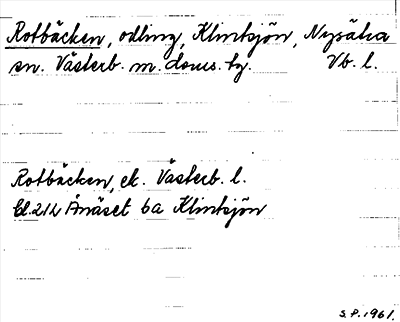 Rotbäcken, odling, Klintsjön, Nysätra
sn. Västerb. m. doms. tg. Vb. l.
Rotbäcken, ek. Västerb. l.
Bl. 212 Ånäset 6a Klintsjön
S.P. 1961.